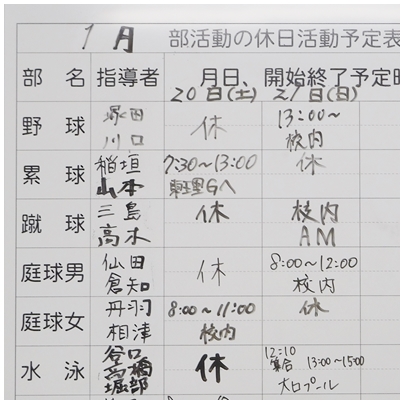 1月 部活動の休日活動予定表
部名 指導者 月日、開始終了予定時
20日(土) 21日(日)
野球 塚田 川口 休 13:00~ 校内
累球 稲垣 山本 7:30~13:00 東理Gへ 休
蹴球 三島 高木 休 校内 AM
庭球男 仙田 倉知 休 8:00~12:00 校内
庭球女 丹羽 相津 8:00~11:00 校内 休
水泳 谷口 堀部 休 12:10 集合 13:00~15:00 大口プール